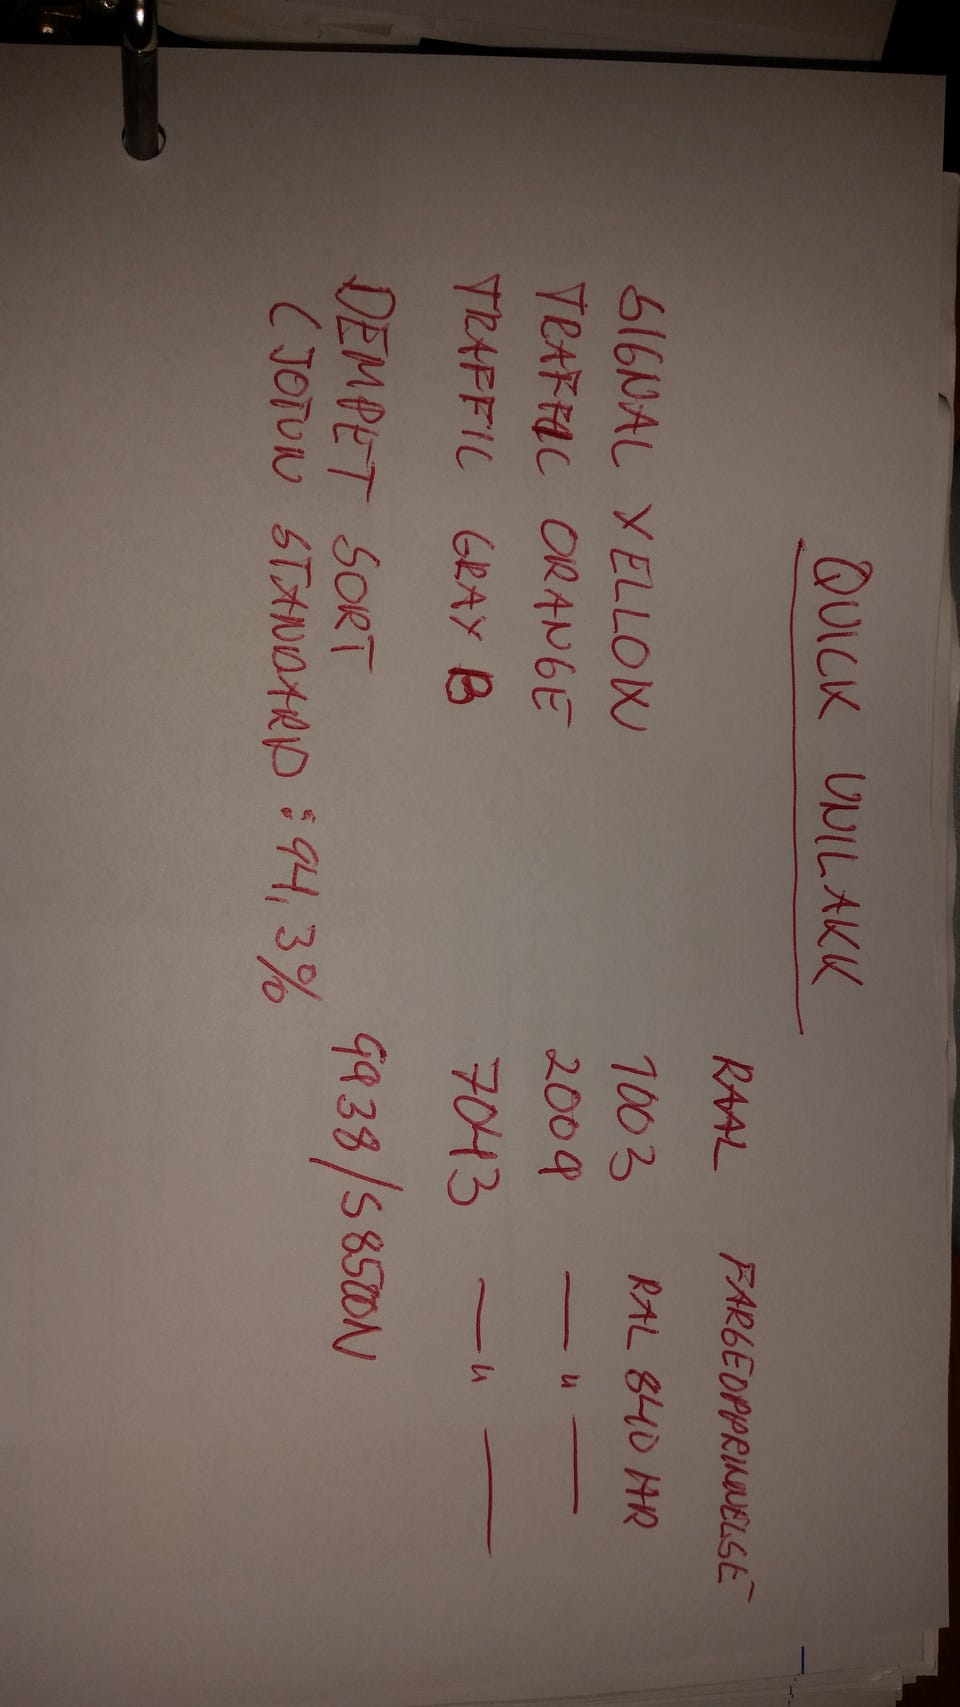 QUICK UNILAKK
RAAL FARGEOPPRINNELSE
SIGNAL YELLOW 1003 RAL 840 HR
TRAFFIC ORANGE 2009 — " —
TRAFFIC GRAY B 7043 — " —
DEMPET SORT 9938/S8500N
(JOTUN STANDARD: 94,3%